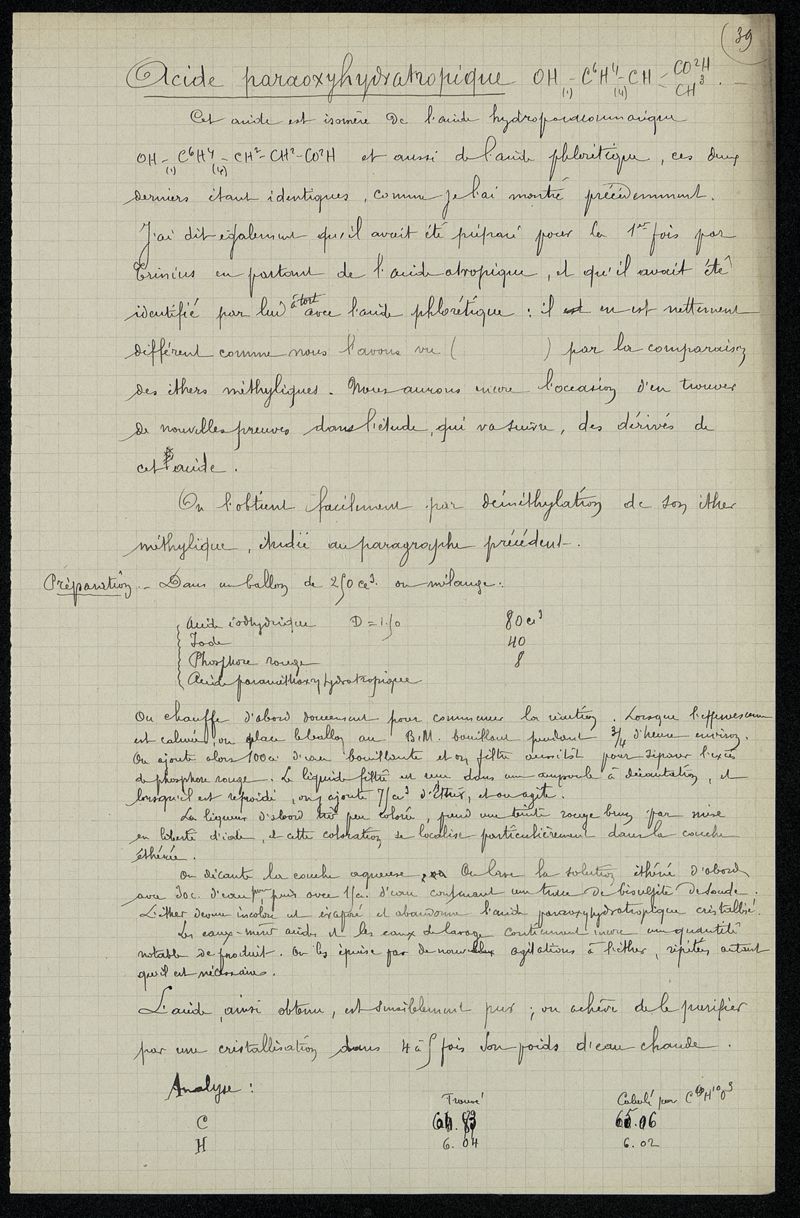 39
Acide paraoxyhydratropique OH - C⁶H⁴ - CH = CO²H
(1) (4) CH³.
Cet acide est isomère de l'acide hydroparacoumarique
OH - C⁶H⁴ - CH² - CH² - CO²H et aussi de l'acide phlorétique, ces deux
(1) (4)
derniers étant identiques, comme je l'ai montré précédemment.
J'ai dit également qu'il avait été préparé pour la 1ère fois par
Trinius en partant de l'acide atropique, et qu'il avait été
identifié par lui à tort avec l'acide phlorétique : il est en est nettement
différent comme nous l'avons vu ( ) par la comparaison
des éthers méthyliques. Nous aurons encore l'occasion d'en trouver
de nouvelles preuves dans l'étude, qui va suivre, des dérivés de
cet acide.
On l'obtient facilement par déméthylation de son éther
méthylique, étudié au paragraphe précédent.
Préparation. - Dans un ballon de 250 cc³. on mélange :
Acide iodhydrique D = 1.50 80 cc³
Iode 40
Phosphore rouge 8
Acide paraméthoxyhydratropique
On chauffe d'abord doucement pour commencer la réaction. Lorsque l'effervescence
est calmée, on place le ballon au B.M. bouillant pendant 3/4 d'heure environ.
On ajoute alors 100cc d'eau bouillante et on filtre aussitôt pour séparer l'excès
de phosphore rouge. Le liquide filtré est reçu dans une ampoule à décantation, et
lorsqu'il est refroidi, on y ajoute 75cc³ d'Ether, et on agite.
La liqueur d'abord très peu colorée, prend une teinte rouge brun par mise
en liberté d'iode, et cette coloration se localise particulièrement dans la couche
éthérée.
On décante la couche aqueuse. On lave la solution éthérée d'abord
avec 30c. d'eau pure, puis avec 15c. d'eau contenant une trace de bisulfite de soude.
L'éther devenu incolore est évaporé et abandonne l'acide paraoxyhydratropique cristallisé.
Les eaux-mères acides et les eaux de lavage contiennent encore une quantité
notable de produit. On les épuise par de nouvelles agitations à l'éther, répétées autant
qu'il est nécessaire.
L'acide, ainsi obtenu, est sensiblement pur ; on achève de le purifier
par une cristallisation dans 4 à 5 fois son poids d'eau chaude.
Analyse :
Trouvé Calculé pour C⁹H¹⁰O³
C 64.83 65.06
H 6.04 6.02